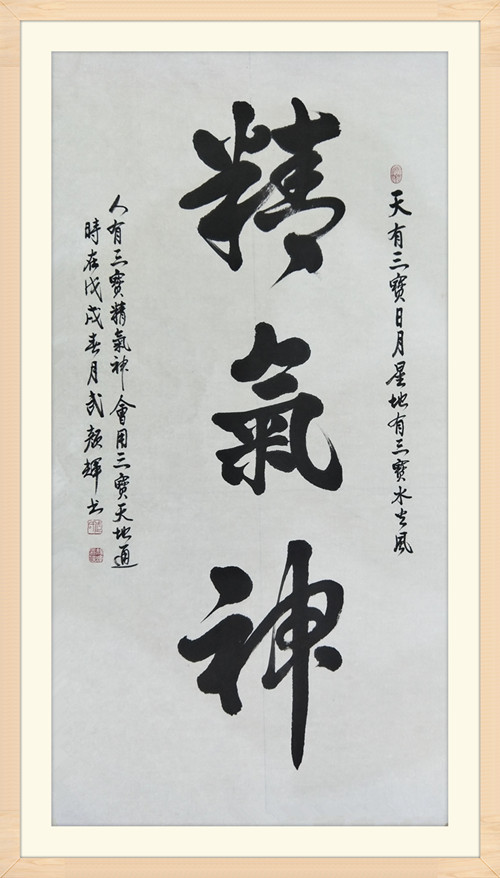 天有三寶日月星地有三寶水火風
精氣神
人有三寶精氣神會用三寶天地通
時在戊戌春月武顏輝书